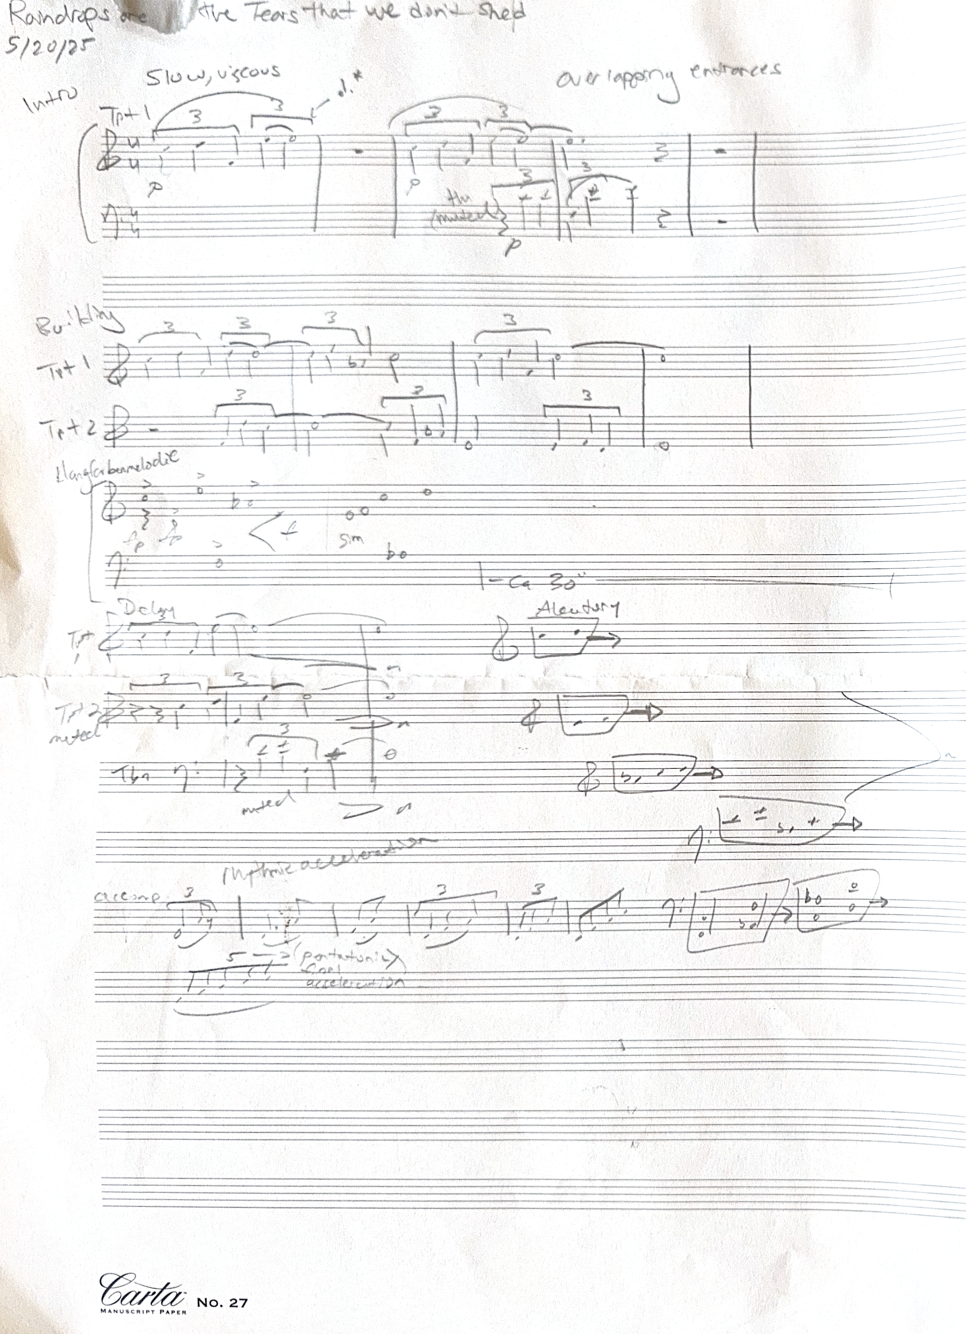 Raindrops are the Tears that we don't shed
5/20/25
Intro
Slow, viscous
overlapping entrances
Tpt 1
3 3
3 3
p
p
3
3
(muted)
p
Building
3 3 3 3
Tpt 1
Tpt 2
3 3 3
Klangfarbenmelodie
fp fp f sim
ca 30"
Delay
Aleatory
3
Tpt 1
n
3 3
Tpt 2
muted
n
3
Tbn
muted
n
rhythmic acceleration
accomp.
3 3 3
5 (pentatonic)
final
acceleration
Carta
MANUSCRIPT PAPER
No. 27